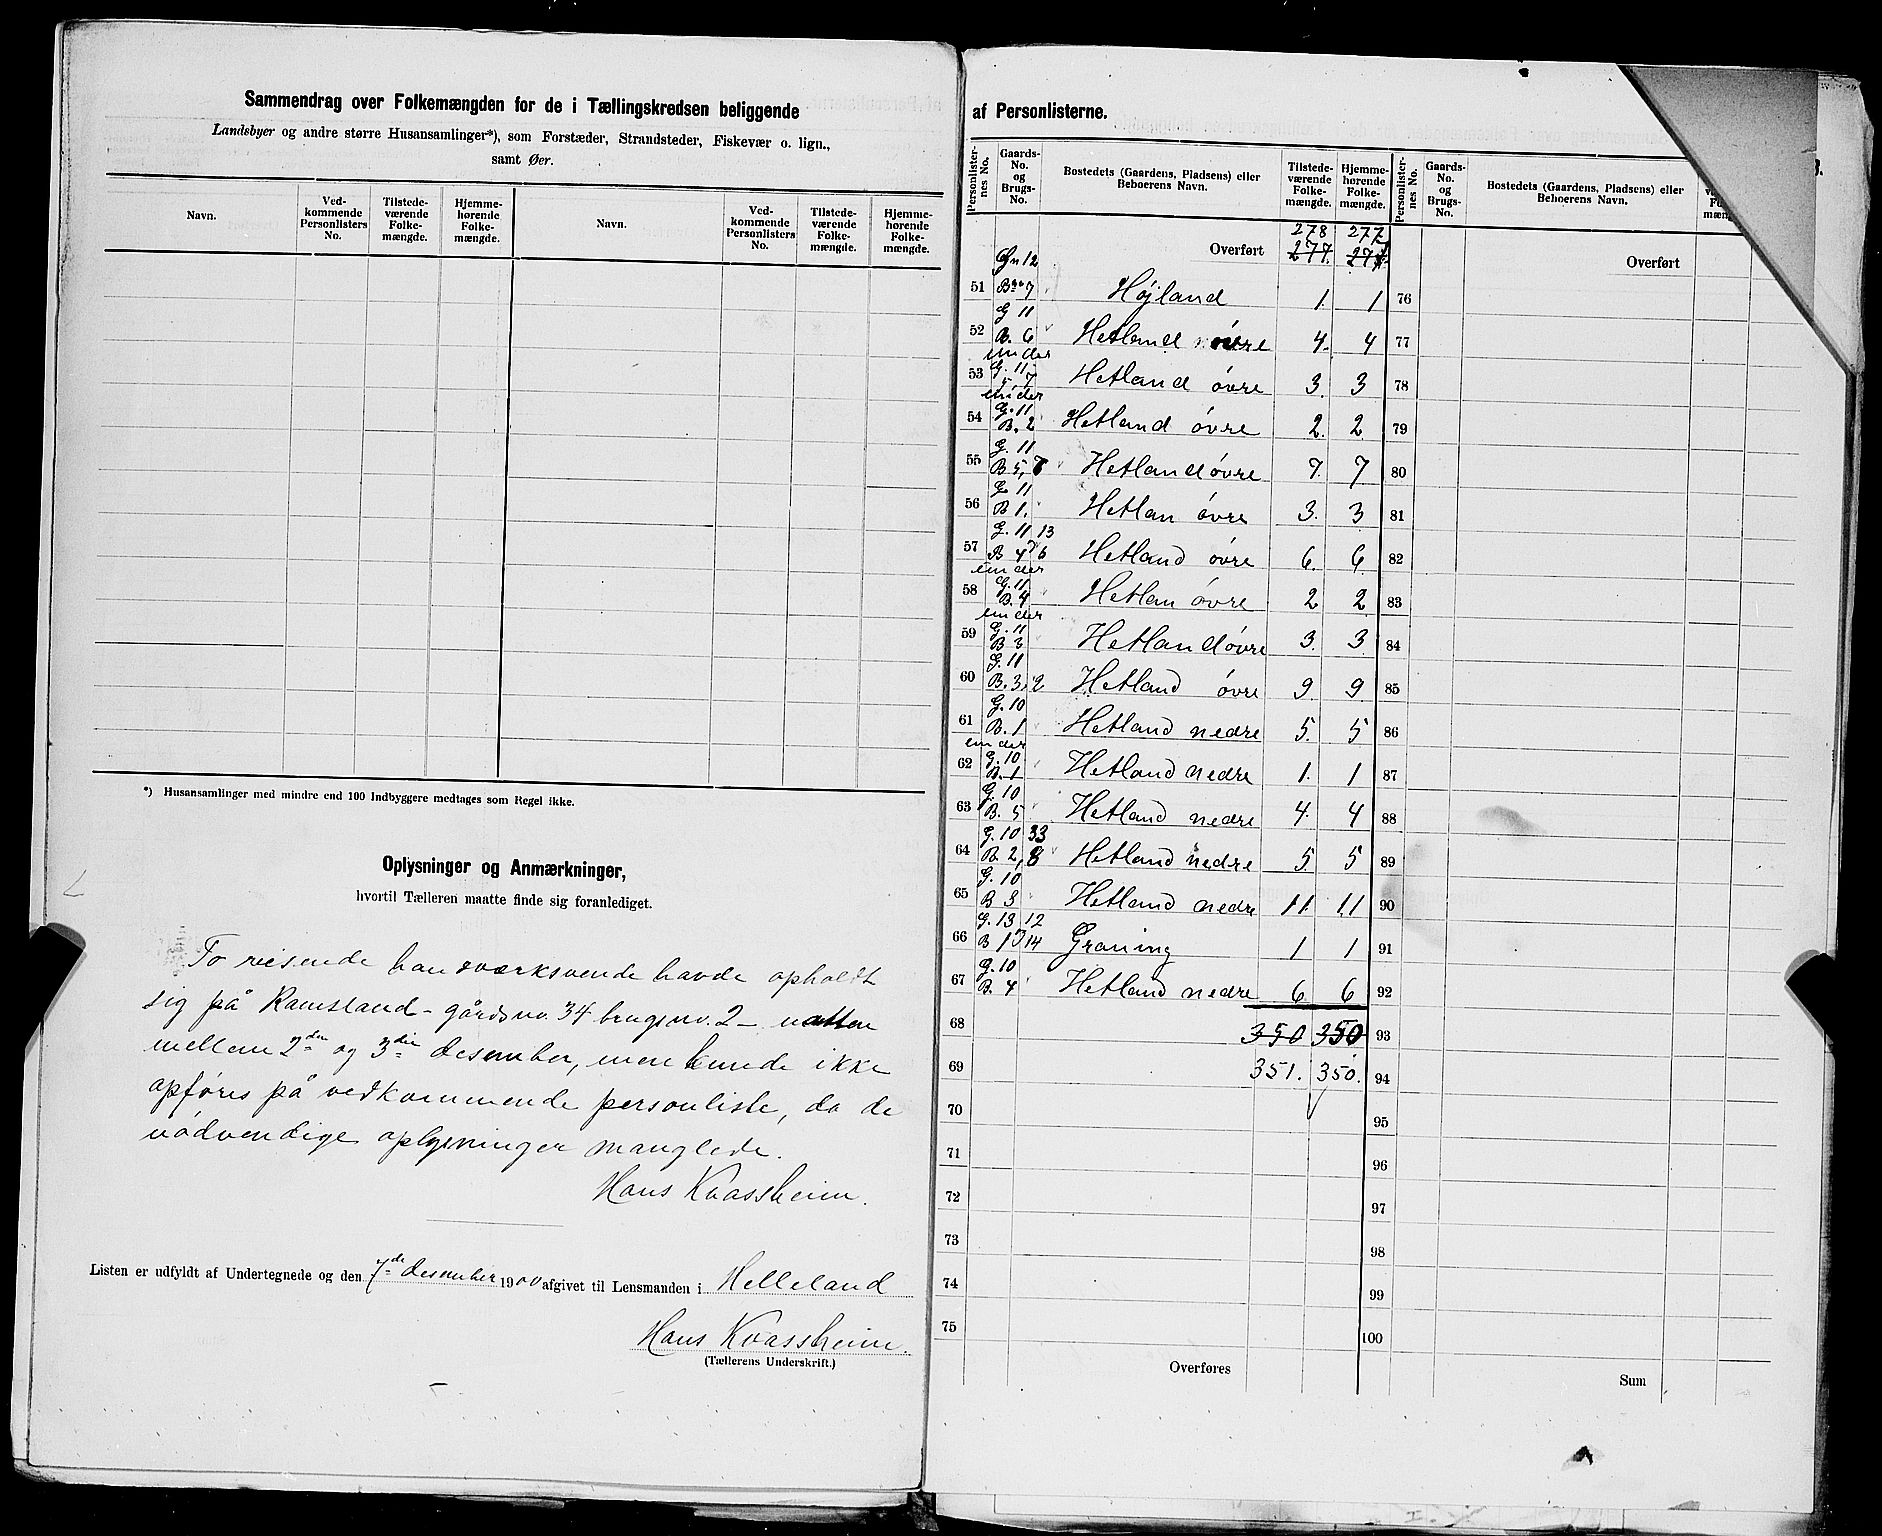 Sammendrag over Folkemængden for de i Tællingskredsen beliggende
Landsbyer og andre større Husansamlinger*), som Forstæder, Strandsteder, Fiskevær o. lign.,
samt Øer.
Navn. Ved-kommende Personlisters No. Tilstede-værende Folke-mængde. Hjemme-hørende Folke-mængde. Navn. Ved-kommende Personlisters No. Tilstede-værende Folke-mængde. Hjemme-hørende Folke-mængde.
*) Husansamlinger med mindre end 100 Indbyggere medtages som Regel ikke.
Oplysninger og Anmærkninger,
hvortil Tælleren maatte finde sig foranlediget.
To reisende handværksvende havde opholdt
sig på Ramsland - gårdsno. 34 brugsno. 2 - natten
mellem 2den og 3die desember, men kunde ikke
opføres på vedkommende personliste, da de
nödvendige oplysninger manglede.
Hans Kvassheim.
Listen er udfyldt af Undertegnede og den 7de desember 1900 afgivet til Lensmanden i Helleland
Hans Kvassheim.
(Tællerens Underskrift.)
af Personlisterne.
Personlister-nes No. Gaards-No. og Brugs-No. Bostedets (Gaardens, Pladsens) eller Beboerens Navn. Tilstede-værende Folke-mængde. Hjemme-hørende Folke-mængde. Personlister-nes No. Gaards-No. og Brugs-No. Bostedets (Gaardens, Pladsens) eller Beboerens Navn.
278 277
Overført 277. Overført
Gn 12
51 Bn 7 Højland 1. 1 76
G 11
52 B. 6 Hetland 4. 4 77
under
G. 11
53 5, 7 Hetland övre 3. 3 78
under
G. 11
54 B. 2 Hetland övre 2. 2 79
G. 11
55 B 5, 7 Hetland övre 7. 7 80
G 11
56 B 1. Hetlan övre 3. 3 81
G. 11 13
57 B 4 6 Hetland övre 6. 6 82
under
G. 11.
58 B. 4 Hetlan övre 2 2 83
under
G. 11
59 B 3 Hetland övre 3. 3 84
G. 11
60 B. 3, 2 Hetland övre 9 9 85
G. 10
61 B. 1 Hetland nedre 5. 5 86
under
G. 10
62 B. 1 Hetland nedre 1. 1 87
G. 10
63 B. 5 Hetland nedre 4. 4 88
G. 10 33
64 B. 2, 8 Hetland nedre 5. 5 89
G. 10
65 B 3 Hetland nedre 11. 11 90
G. 13 12
66 B 1 14 Graning 1 1 91
G. 10
67 B. 4 Hetland nedre 6 6 92
68 350 350 93
69 351. 350. 94
70 95
71 96
72 97
73 98
74 99
75 100
Overføres Sum